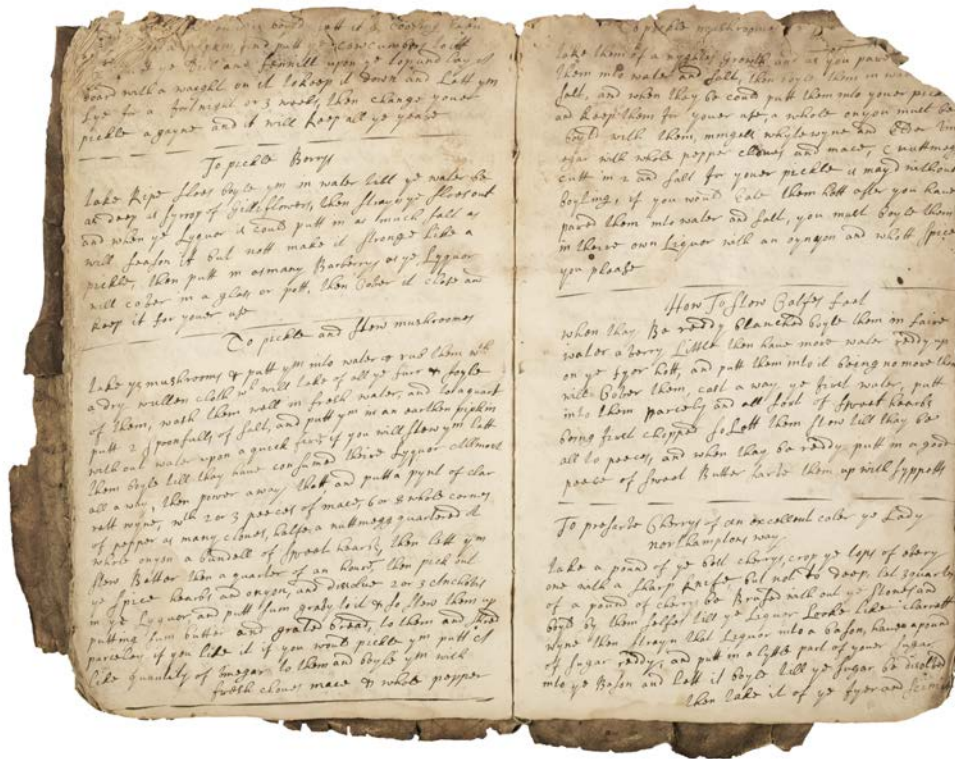 would putt it a
and putt ye Cowcumbers to itt
ye Dill and fennill upon ye top and lay a
board with a waight on it to keep it down and Lett ym
Lye for a fortnight or 3 weeks, then change youer
pickle a gayne and it will keep all ye yeare
To pickle Berrys
take Ripe sloes boyle ym in water till ye water be
as deep as syrop of Gilliflowers, then strayn ye sloes out
and when ye Lyquor is could putt in as much salt as
will season it but nott make it stronge like a
pickle, then putt in as many Barberrys as ye Lyquor
will cover in a glass or pott, then Cover it close and
keep it for youer use
To pickle and stew mushroomes
take ye mushrooms & putt ym into water & rub them wth
a dry wullen cloth wh will take of all ye furr & soyle
of them, wash them well in fresh water, and to a quart
putt 2 spoonfulls of salt, and putt ym in an earthen pipkin
without water upon a quick fire if you will stew ym lett
them boyle till they have consumed theire Lyquor allmost
all a way, then power away that, and putt a pynt of clar
rett wyne, wth 2 or 3 peeces of mace, 6 or 8 whole cornes
of pepper as many cloves, halfe a nuttmegg quartered a
whole onyon a bundell of sweet hearbs, then lett ym
stew Better then a quarter of an houre, then pick out
ye spice hearbs and onyon, and disolve 2 or 3 Anchovies
in ye Lyquor, and putt sum gravy to it & so stew them up
putting sum butter and grated bread, to them and shred
parceley if you like it if you would pickle ym putt a
like quantity of vinegar to them and boyle ym with
fresh cloves mace & whole pepper
To pickle mushrooms
take them of a nyghts growth and as you pare
them into water and salt, then boyle them in
salt, and when they be could putt them into youer
and keep them for youer use, a whole onyon must be
boyld with them, mingell whyte wyne and
egar with whole pepper cloves and mace, a nuttmeg
cutt in 2 and salt for youer pickle it may without
boyling, if you would eate them hott after you have
pared them into water and salt, you must boyle them
in theire own Liquor with an oynyon and whott spice
you please
How To stew Calfes feet
when they Be reddy blanched boyle them in faire
water a verry Little then have more water reddy up
on ye fyer hott, and putt them into it being no more then
will Cover them, cast a way ye first water, putt
into them parcely and all sort of sweet hearbs
being first chopped so Lett them stew till they be
all to peeces, and when they be reddy putt in a good
peece of sweet Butter them up with syppetts
To preserve Cherrys of an excellent coler ye Lady
northamptons way
take a pound of ye best cherrys, crop ye tops of every
one with a sharp knife but not to deep, let 3 quarters
of a pound of cherrys be Brused with out ye stones and
boyld by them selfes till ye Liquor Looke like clarrett
wyne then strayn that Liquor into a bason, have a pound
of sugar reddy, and putt in a lyttle part of your sugar
into ye Bason and Lett it boyle till ye sugar be disolved
then take it of ye fyer and